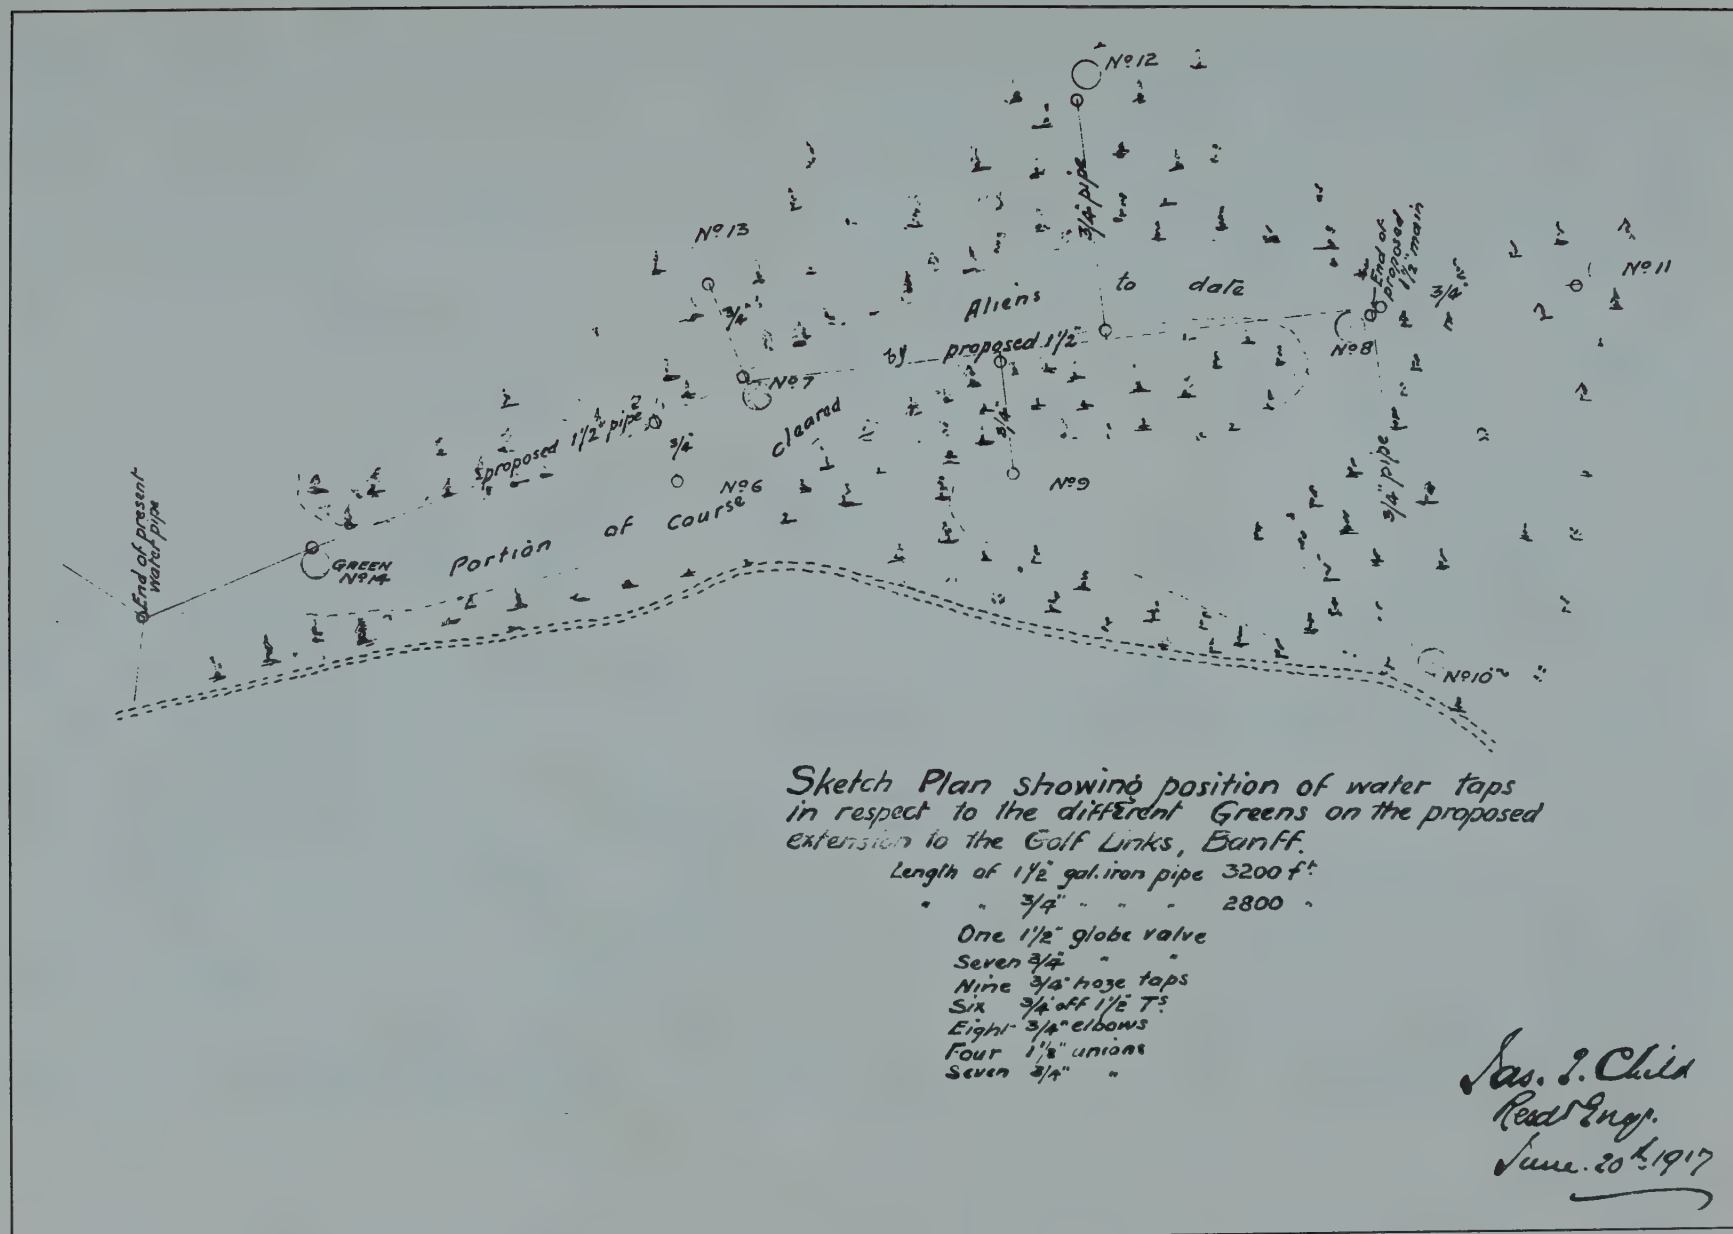 Nº 12
3/4" pipe
Nº 13
3/4"
End of
proposed
1 1/2" main
3/4"
Nº 11
Portion of Course cleared by Aliens to date
proposed 1 1/2"
Nº 8
Nº 7
proposed 1 1/2" pipe
3/4"
Nº 6
3/4"
Nº 9
3/4" pipe
End of present
Water pipe
GREEN
Nº 14
Nº 10
Sketch Plan showing position of water taps
in respect to the different Greens on the proposed
extension to the Golf Links, Banff.
Length of 1 1/2" gal. iron pipe 3200 ft.
" " 3/4" " " " 2800 "
One 1 1/2" globe valve
Seven 3/4" " "
Nine 3/4" hose taps
Six 3/4" off 1 1/2" Ts
Eight 3/4" elbows
Four 1 1/2" unions
Seven 3/4" "
Jas. I. Child
Resdt Engr.
June. 20th 1917